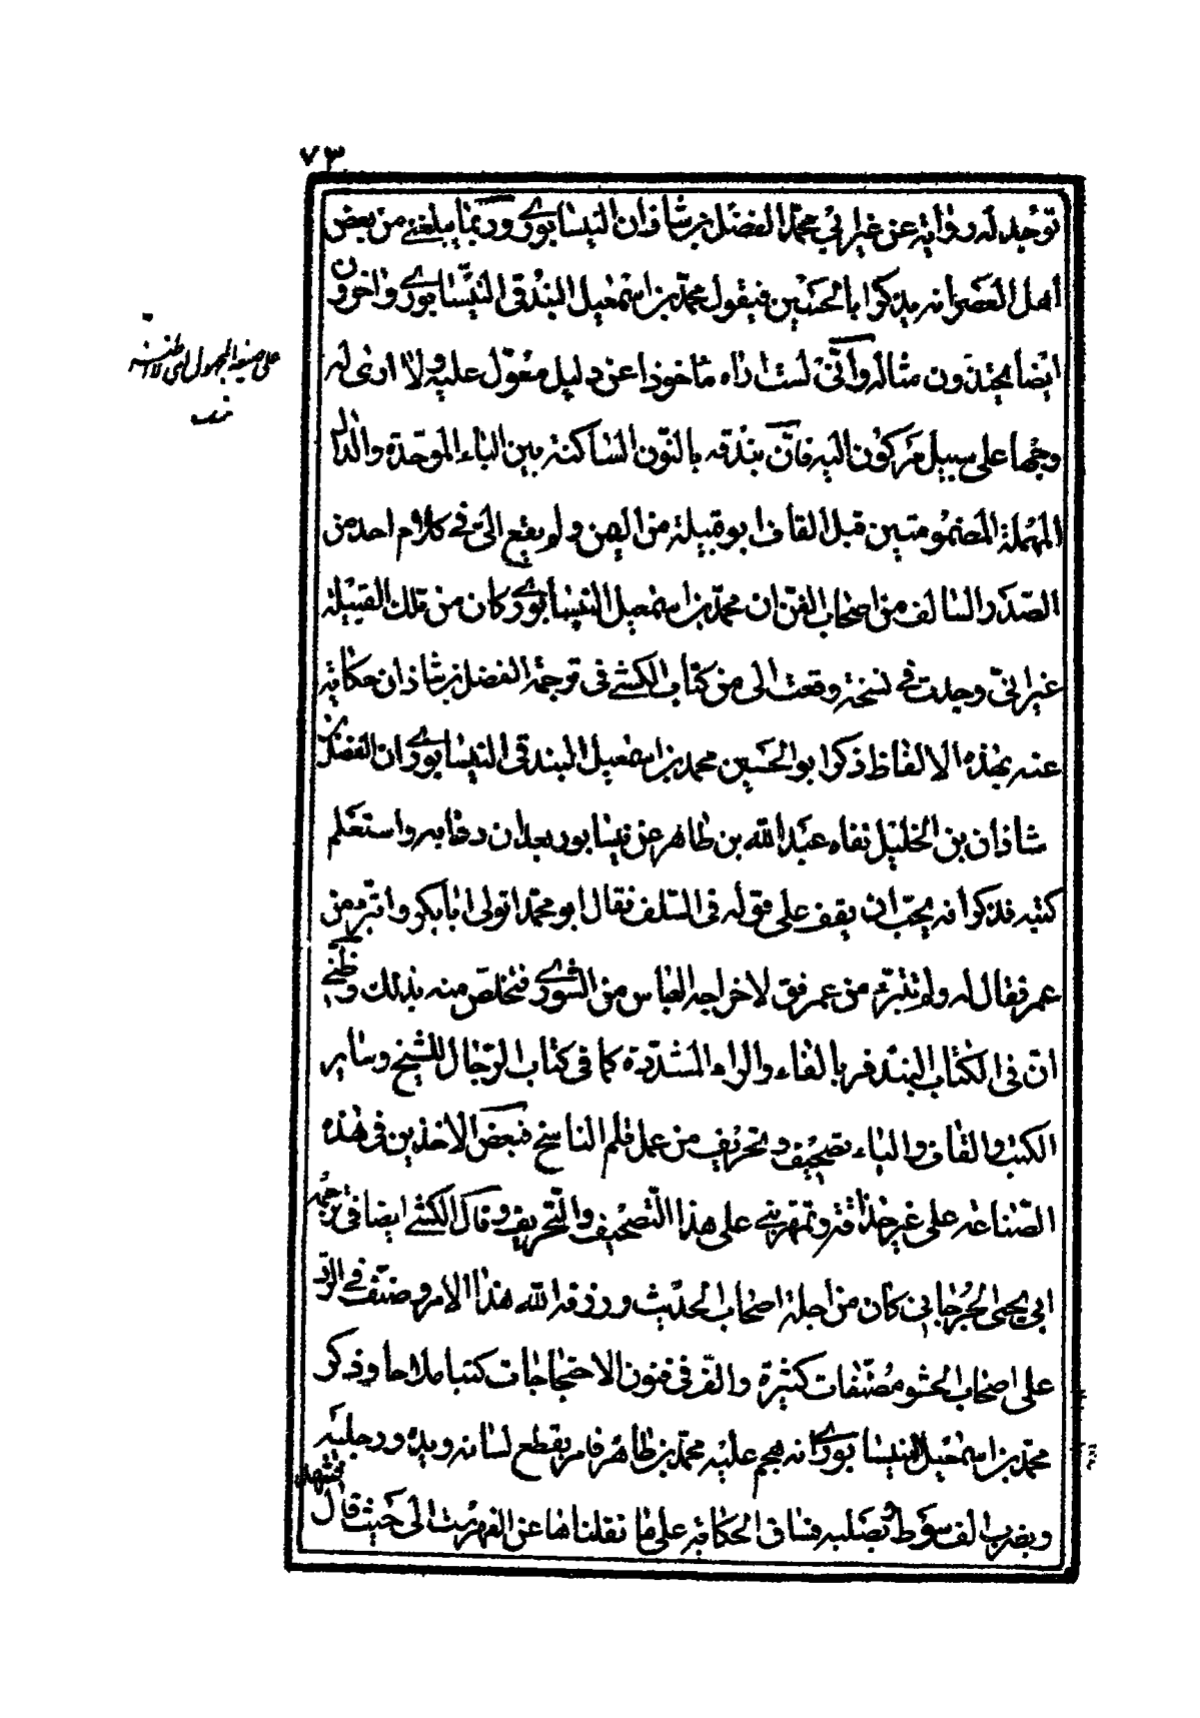 ٧٣
توجد له رواية عن غير ابي محمد الفضل بن شاذان النيسابوري وربما يبلغني من بعض
أهل العصر انه يذكر ابا الحسين فيقول محمد بن اسمعيل البندقي النيسابوري واخرون
ايضا يحتذون مثاله وانى لست اراه ماخوذا عن دليل معول عليه ولا ارى له
وجها على سبيل مركون اليه فان بندقه بالنون الساكنة بين الباء الموحدة والدال
المهملة المضمومتين قبل القاف ابو قبيلة من اليمن ولم يقع الى في كلام احد من
الصدر السالف من اصحاب الفن ان محمد بن اسمعيل النيسابوري كان من تلك القبيلة
غير انى وجدت في نسخة وقعت الى من كتاب الكشي في ترجمة الفضل بن شاذان حكاية
عنه بهذه الالفاظ ذكر ابو الحسين محمد بن اسمعيل البندقي النيسابوري ان الفضل بن
شاذان بن الخليل نفاه عبد الله بن طاهر عن نيسابور بعد ان دعا به واستعلم
كتبه فذكر انه يحب ان يقف على قوله في السلف فقال ابو محمد اتولى ابا بكر واتبرء من
عمر فقال له ولم تتبرء من عمر فق لاخراجه العباس من الشورى فتخلص منه بذلك وظني
ان في الكتاب البندفر بالفاء والراء المشددة كما في كتاب الرجال للشيخ وساير
الكتب والقاف والياء تصحيف وتحريف من عمل قلم الناسخ فبعض الاخذين في هذه
الصناعة على غير حذاقة وتمهر بني على هذا التصحيف والتحريف وقال الكشي ايضا في ترجمة
ابي يحيى الجرجاني كان من اجلة اصحاب الحديث ورزقه الله هذا الامر وصنف في الرد
على اصحاب الحشو مصنفات كثيرة والف في فنون الاحتجاجات كتبا ملاحا وذكر
محمد بن اسمعيل النيسابوري انه هجم عليه محمد بن طاهر فامر بقطع لسانه ويديه ورجليه
ويضرب الف سوط ويصلبه فساق الحكاية على ما نقلناها عن الفهرست الى حيث قال
على صيغة المجهول